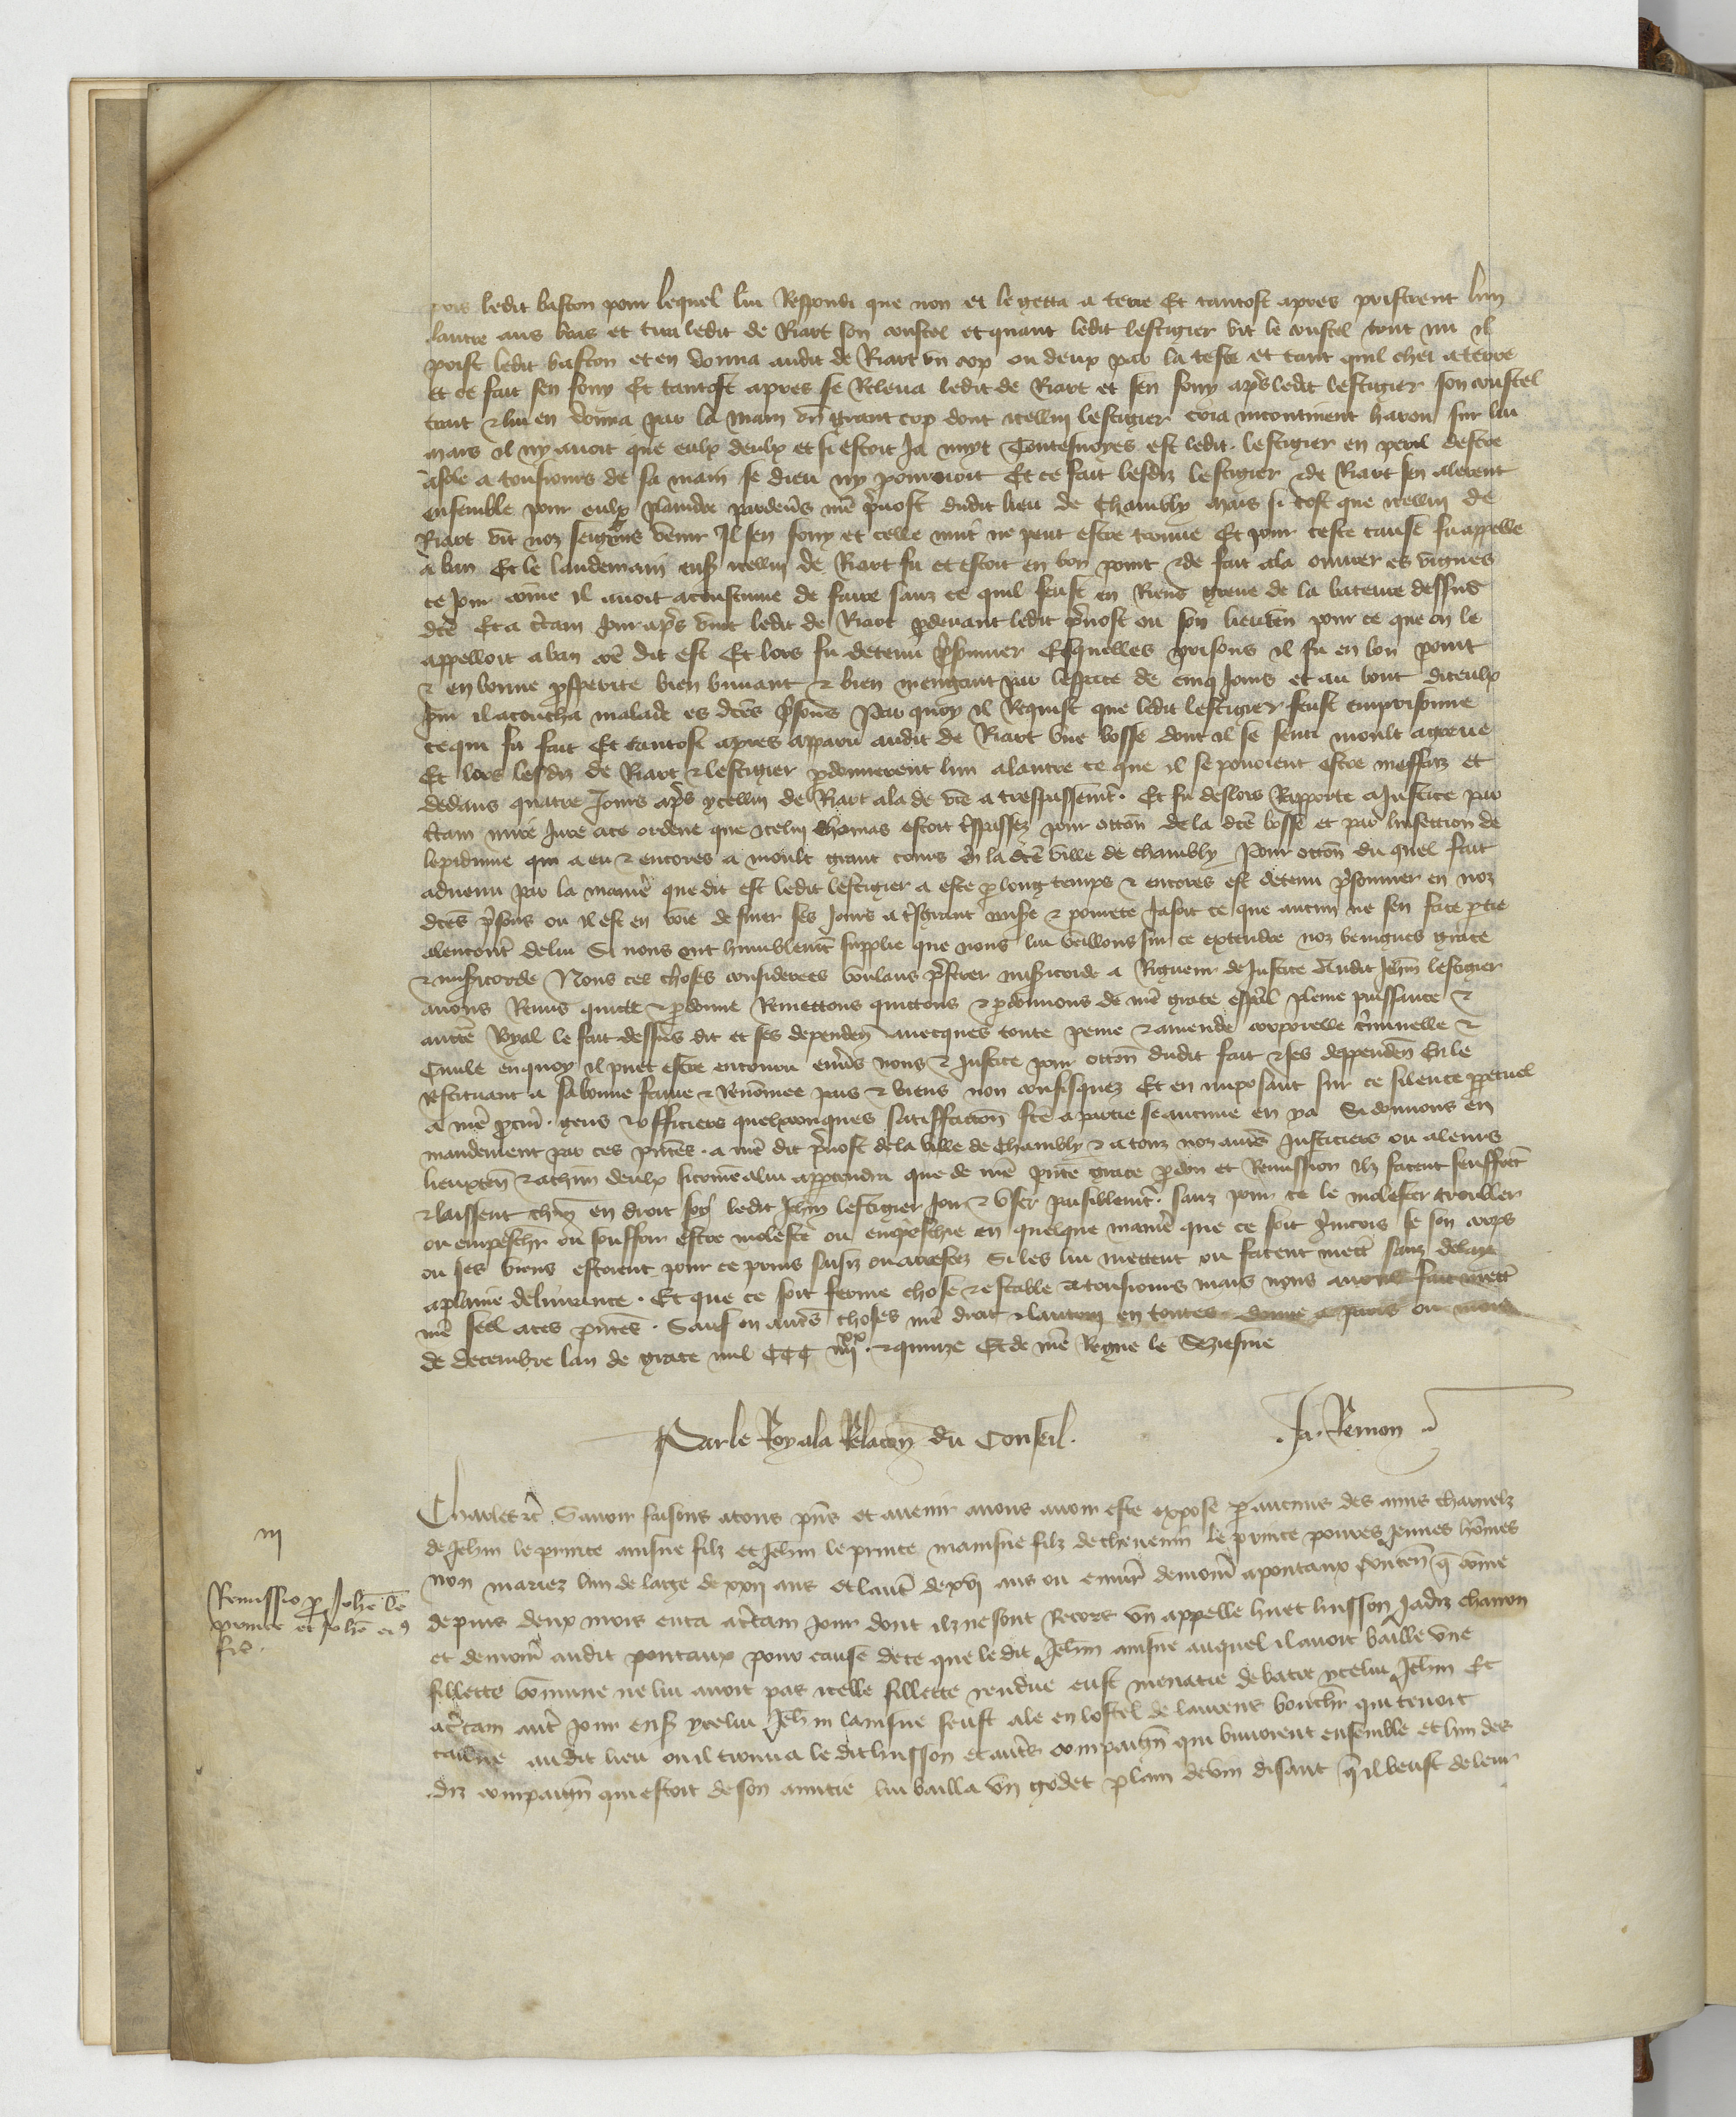 ledit baston pour lequel lui Respondi que non et le getta a terre Et tantost apres pristrent lun
lautre aus bras et tira ledit de Riart son coustel et quant ledit lestigier vit le coustel tout nu il
prist ledit baston et en donna audit de Riart vn cop ou deux par la teste et tant quil chei a terre
et ce fait sen fouy Et tantost apres se Releua ledit de Riart et sen fouy apres ledit lestigier son coustel
trait & lui en donna par la main vn grant cop dont icellui lestigier cria incontinent harou sur lui
mais il ny auoit que eulx deulx et si estoit Ja nuyt Toutesuoyes est ledit lestigier en peril destre
a tousiours de sa main se dieu ny pourueoit Et ce fait lesdiz lestigier & de Riart sen alerent
ensemble pour eulx plaindre pardeuers nre preuost dudit lieu de Chambly mais si tost que icellui de
Riart vit noz venir Il sen fouy et celle nuit ne peut estre trouue Et pour ceste cause fu appelle
a ban Et le landemain icellui de Riart fu et estoit en bon point & de fait ala ouurer es vignes
ce Jour come il auoit acoustume de faire sanz ce quil feust en Riens greue de la bateure dessus
dce Et a certain Jour apres vint ledit de Riart pdeuant ledit preuost ou son lieuten pour ce que on le
appelloit a ban come dit est Et lors fu detenu prisonnier Esquelles prisons il fu en bon point
& en bonne prosperite bien buuant & bien mengant par lespace de cinq Jours et au bout diceulx
Jours il acoucha malade es dces prisons Par quoy il Requist que ledit lestigier feust emprisonne
ce qui fu fait Et tantost apres apparu audit de Riart vne bosse dont il se senti moult agreue
Et lors lesdiz de Riart & lestigier pdonnerent lun a lautre ce que il se pouoient estre meffaiz et
dedans quatre Jours apres ycellui de Riart ala de vie a trespassement. Et fu deslors Rapporte a Justice par
certain mire Jure a ce ordene que icelui thomas estoit trespassez pour occon de la dce bosse et par linfection de
lepidimie qui a eu & encores a moult grant cours en la dce ville de chambly Pour occon du quel fait
aduenu par la maniere que dit est ledit lestigier a este p long temps & encores est detenu prisonnier en noz
dces prisons ou il est en voie de finer ses Jours a tresgrant misere & pourete Jasoit ce que aucun ne sen face ptie
alencontre de lui Si nous ont humblement supplie que nous lui veillons sur ce extendre noz benignes grace
& misericorde Nous ces choses considerees voulans preferer misericorde a Rigueur de Justice Audit Jehan lestigier
auons Remis quitte & pdonne Remettons quittons & pdonnons de nre grace especial pleine puissance &
auctorite Royal le fait dessus dit et ses dependen auecques toute peine & amende corporelle criminelle &
Ciuile en quoy il puet estre encouru enuers nous & Justice pour occon dudit fait & ses deppenden Et le
Restituant a sa bonne fame & Renommee pais & biens non confisquez Et en imposant sur ce silence ppetuel
a nre procur. gens & officiers quelxconques satisfaction fce a partie se aucune en ya Si donnons en
mandement par ces pntes. a nre dit preuost de la ville de Chambly & a touz noz autres Justiciers ou a leurs
lieuxten & a chun deulx si come a lui appartendra que de nre pnte grace pdon et Remission ilz facent seuffrent
& laissent en droit soy ledit Jehan lestigier Joir & vser paisiblement. sanz pour ce le molester trauiller
ou empescher ou souffrir estre moleste ou empeschie en quelque maniere que ce soit Aincois se son corps
ou ses biens estoient pour ce prins saisiz ou arrestez Si les lui mettent ou facent mettre sanz delay
a plaine deliurance. Et que ce soit ferme chose & estable a tousiours mais nous auons fait mettre
nre seel a ces pntes. Sauf en autres choses nre droit & lautrui en toutes donne a Paris ou mois
de decembre lan de grace mil CCC iiii xx. & quinze Et de nre Regne le Seziesme
Par le Roy a la Relacon du Conseil.
Ja. Remon
Charles &c Sauoir faisons a touz pns et auenir a nous auoir este expose p aucuns des amis charnelz
de Jehan le prince ainsne filz et Jehan le prince mainsne filz de theuenin le prince poures Jeunes hommes
non mariez lun de laage de xxii ans et lautre de xvi ans ou enuiron demorans a pontaux q come
depuis deux mois enca a certain jour dont ilz ne sont Recors vn appelle huet husson Jadiz charron
et demorant audit pontaux pour cause de ce que ledit Jehan ainsne auquel il auoit baille vne
fillette comune ne lui auoit pas icelle fillette rendue eust menacie de batre ycelui Jehan Et
a certain autre jour ycelui Jehan lainsne feust ale en lostel de laurens boucher qui tenoit
tauerne audit lieu ou il trouua le dit husson et autres compaignons qui buuoient ensemble et lun des
diz compaignons qui estoit de son amitie lui bailla vn godet plain de vin disant q il beust de leur
iii
Remissio p Johe le
prince et Johe ei9
fre.